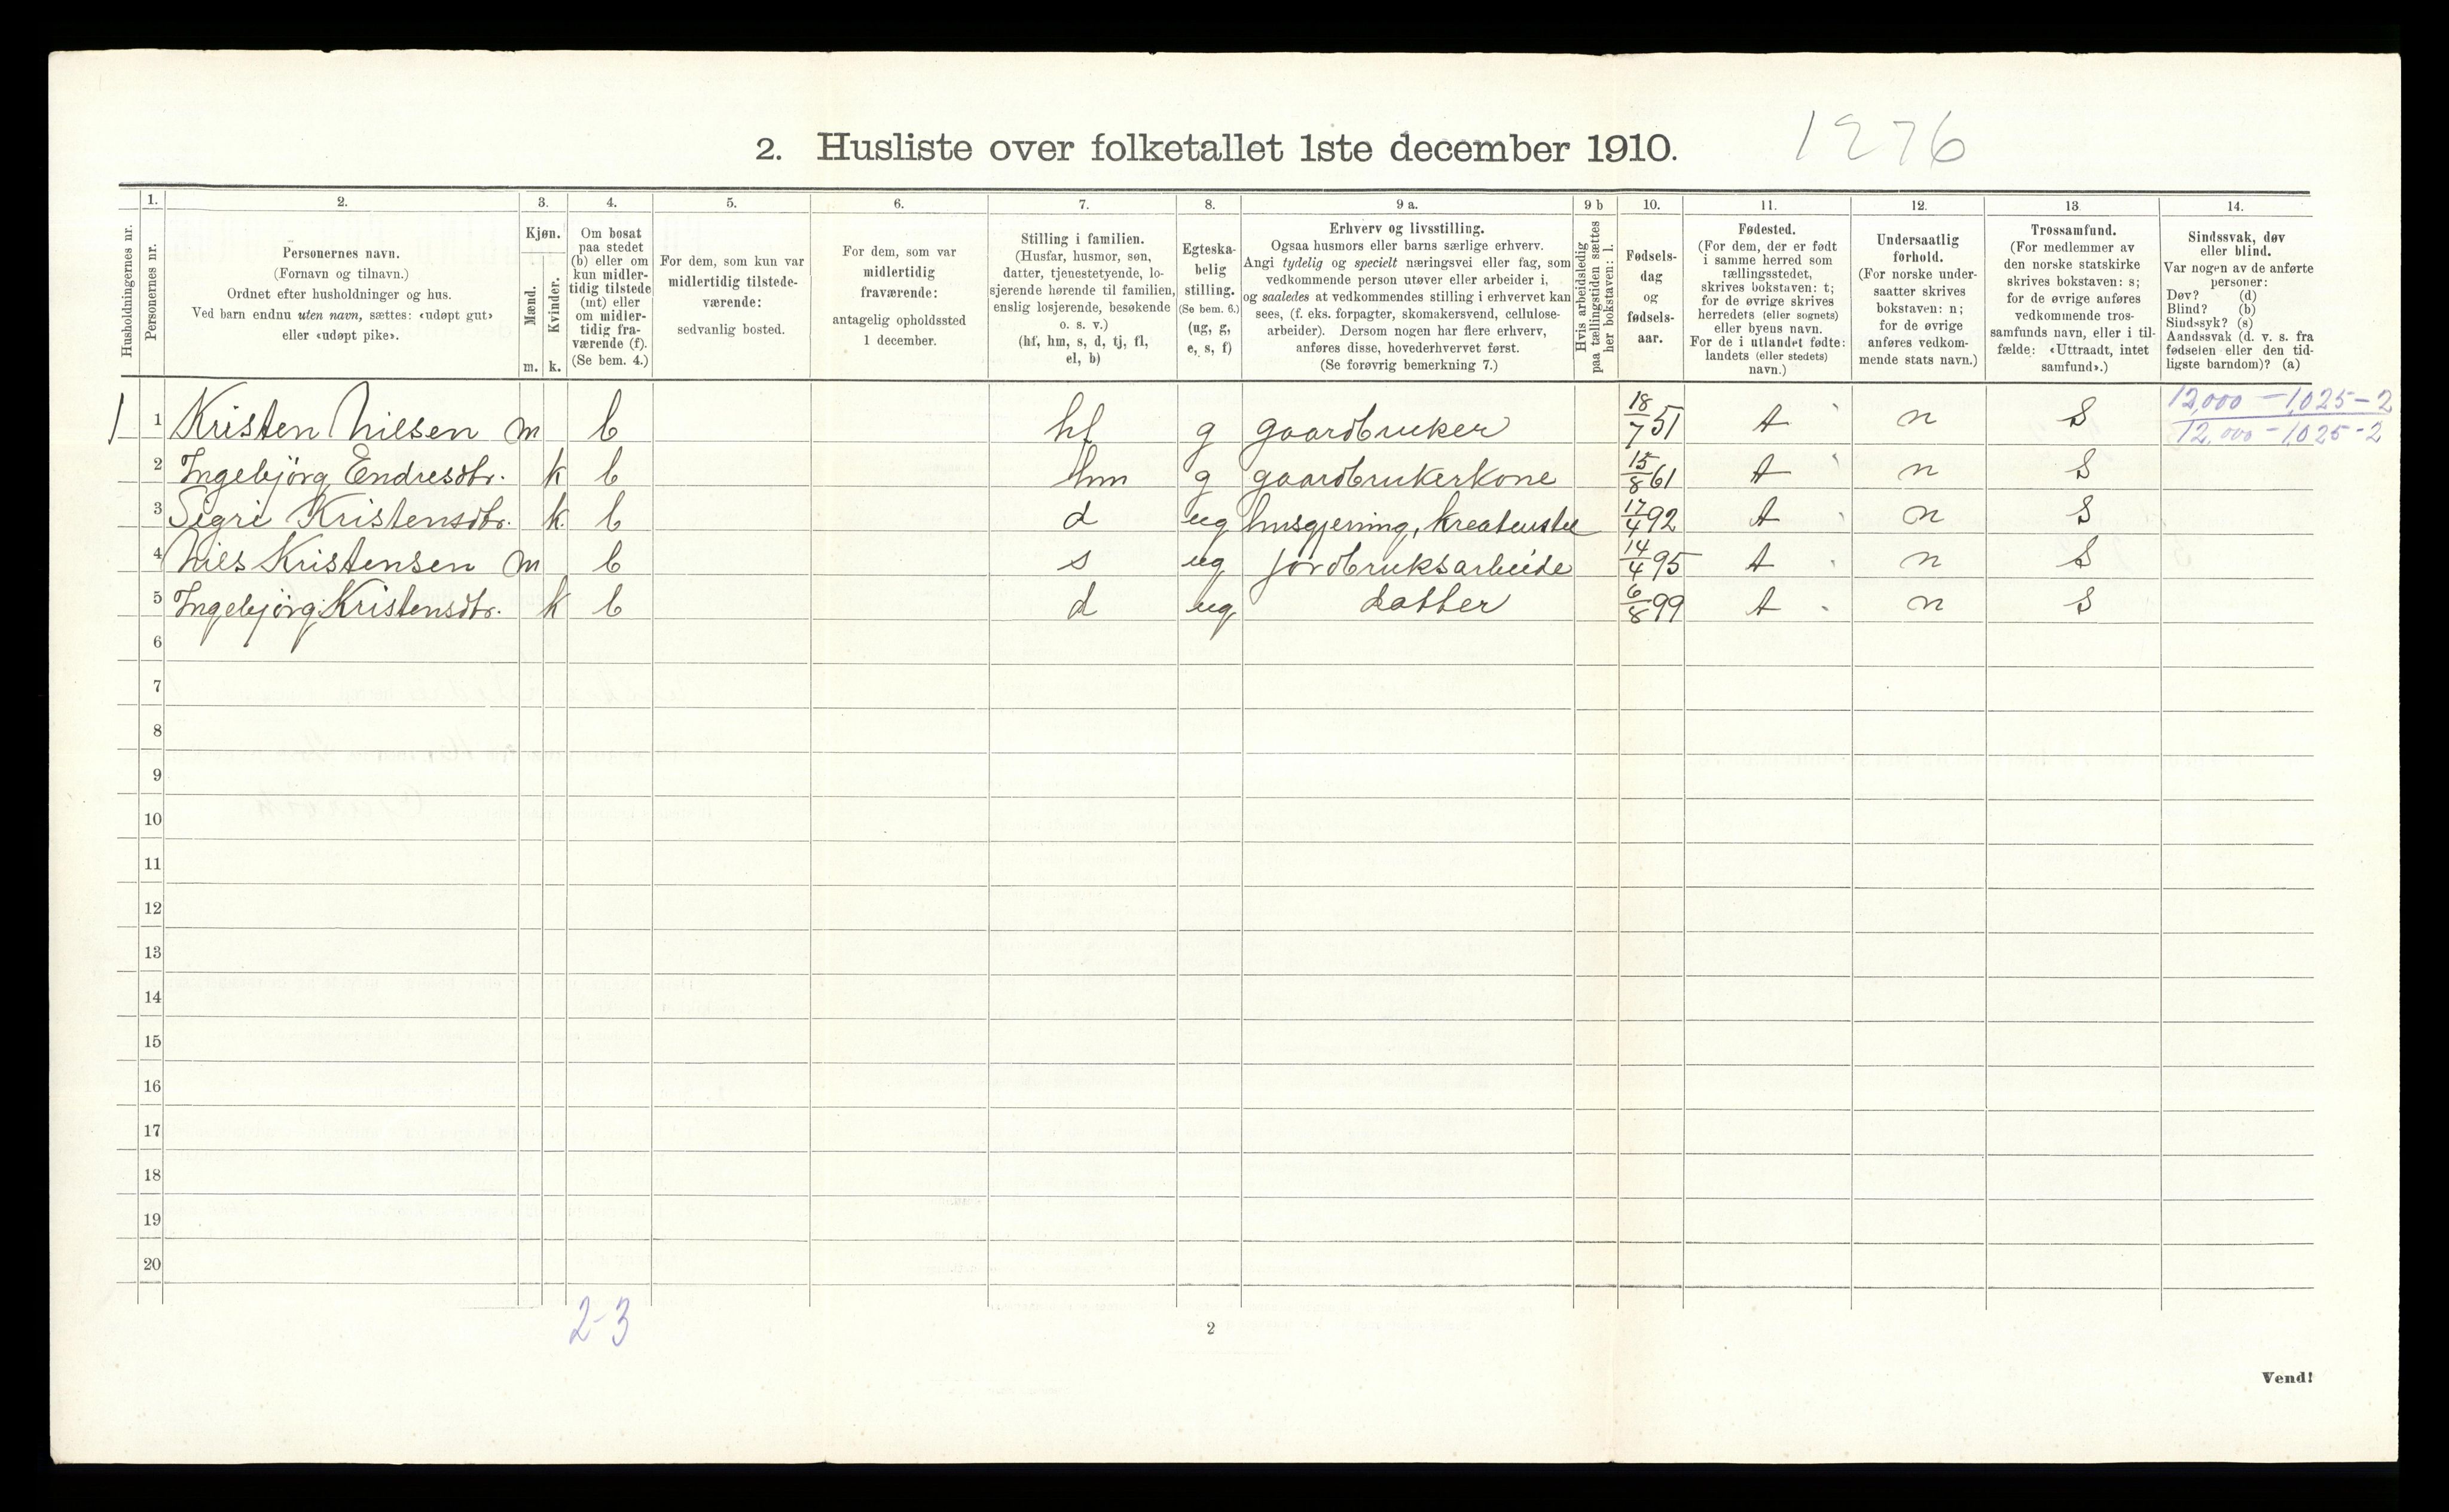 2. Husliste over folketallet 1ste december 1910.
1276
Husholdningernes nr.
1.
Personernes nr.
2.
Personernes navn.
(Fornavn og tilnavn.)
Ordnet efter husholdninger og hus.
Ved barn endnu uten navn, sættes: «udøpt gut»
eller «udøpt pike».
3.
Kjøn.
Mænd.
Kvinder.
m. k.
4.
Om bosat
paa stedet
(b) eller om
kun midler-
tidig tilstede
(mt) eller
om midler-
tidig fra-
værende (f).
(Se bem. 4.)
5.
For dem, som kun var
midlertidig tilstede-
værende:
sedvanlig bosted.
6.
For dem, som var
midlertidig
fraværende:
antagelig opholdssted
1 december.
7.
Stilling i familien.
(Husfar, husmor, søn,
datter, tjenestetyende, lo-
sjerende hørende til familien,
enslig losjerende, besøkende
o. s. v.)
(hf, hm, s, d, tj, fl,
el, b)
8.
Egteska-
belig
stilling.
(Se bem. 6.)
(ug, g,
e, s, f)
9 a.
Erhverv og livsstilling.
Ogsaa husmors eller barns særlige erhverv.
Angi tydelig og specielt næringsvei eller fag, som
vedkommende person utøver eller arbeider i,
og saaledes at vedkommendes stilling i erhvervet kan
sees, (f. eks. forpagter, skomakersvend, cellulose-
arbeider). Dersom nogen har flere erhverv,
anføres disse, hovederhvervet først.
(Se forøvrig bemerkning 7.)
9 b
Hvis arbeidsledig
paa tællingstiden sættes
her bokstaven: l.
10.
Fødsels-
dag
og
fødsels-
aar.
11.
Fødested.
(For dem, der er født
i samme herred som
tællingsstedet,
skrives bokstaven: t;
for de øvrige skrives
herredets (eller sognets)
eller byens navn.
For de i utlandet fødte:
landets (eller stedets)
navn.)
12.
Undersaatlig
forhold.
(For norske under-
saatter skrives
bokstaven: n;
for de øvrige
anføres vedkom-
mende stats navn.)
13.
Trossamfund.
(For medlemmer av
den norske statskirke
skrives bokstaven: s;
for de øvrige anføres
vedkommende tros-
samfunds navn, eller i til-
fælde: «Uttraadt, intet
samfund».)
14.
Sindssvak, døv
eller blind.
Var nogen av de anførte
personer:
Døv? (d)
Blind? (b)
Sindssyk? (s)
Aandssvak (d. v. s. fra
fødselen eller den tid-
ligste barndom)? (a)
12,000 - 1,025 - 2
1 1 Kristen Nilsen m b hf g gaardbruker 18/7 51 t n S 12,000 - 1,025 - 2
2 Ingebjörg Endresdtr. k b hm g gaardbrukerkone 15/8 61 t n S
3 Sigri Kristensdtr. k. b d ug husgjerning, kreaturstel 17/4 92 t n S
4 Nils Kristensen m b s ug jordbruksarbeide 14/4 95 t n S
5 Ingebjörg Kristensdtr. k b d ug datter 6/8 99 t n S
6
7
8
9
10
11
12
13
14
15
16
17
18
19
20
2-3
2
Vend!